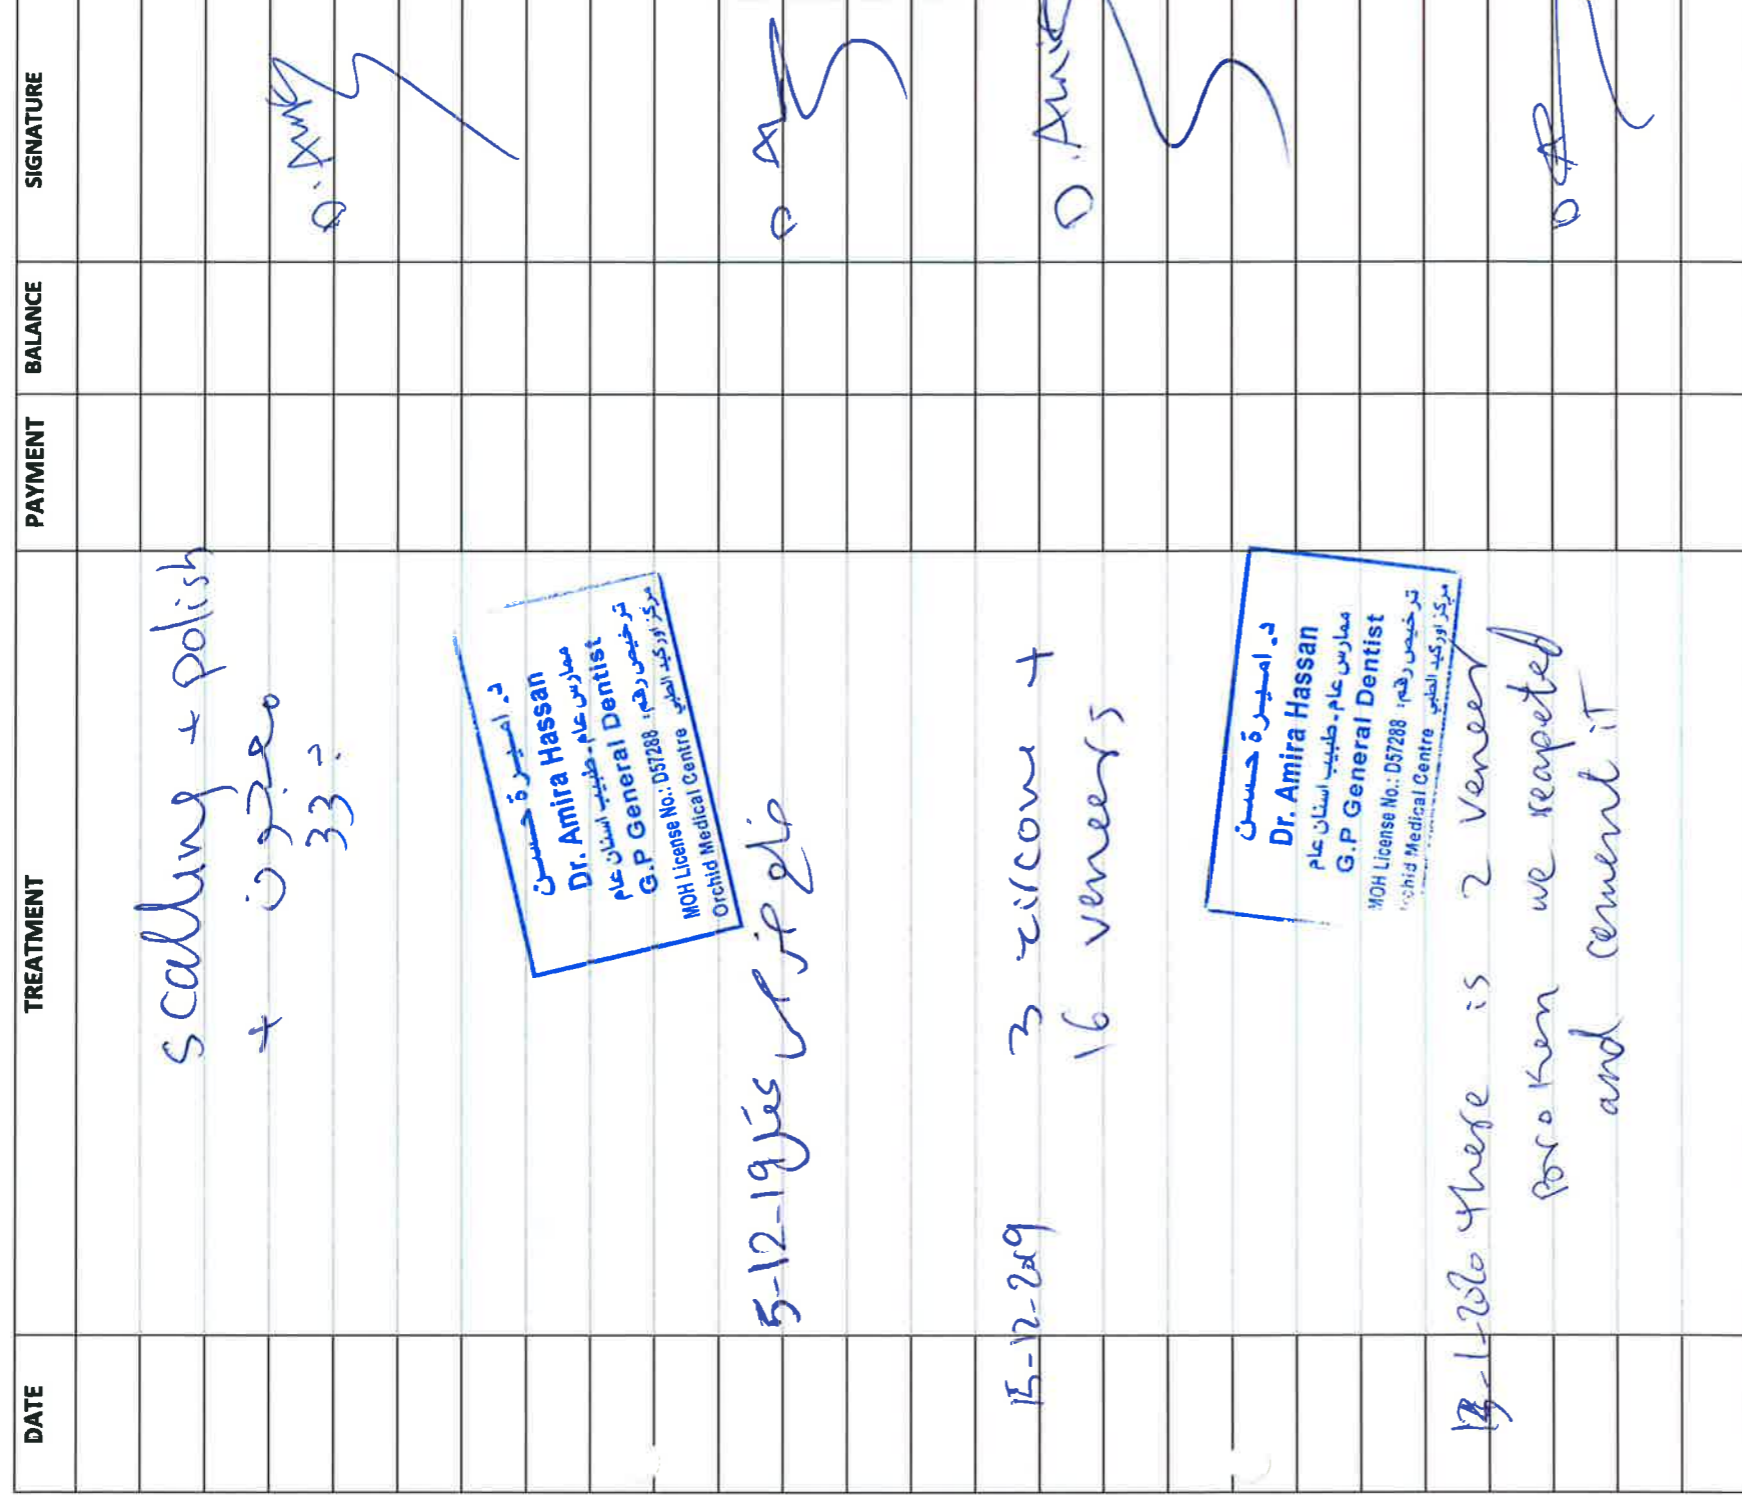 DATE TREATMENT PAYMENT BALANCE SIGNATURE
scalling + polish
+ معجون
33?
D. Amira
د. أميرة حسن
Dr. Amira Hassan
ممارس عام - طبيب اسنان عام
G.P General Dentist
MOH License No.: D57288 :ترخيص رقم
Orchid Medical Centre مركز اوركيد الطبي
5-12-19
15-12-2019 3 zircon +
16 veneers
D. Amira
د. أميرة حسن
Dr. Amira Hassan
ممارس عام - طبيب اسنان عام
G.P General Dentist
MOH License No.: D57288 :ترخيص رقم
Orchid Medical Centre مركز اوركيد الطبي
-1-2020 there is 2 veneer
broken we reapeted
and cement iT